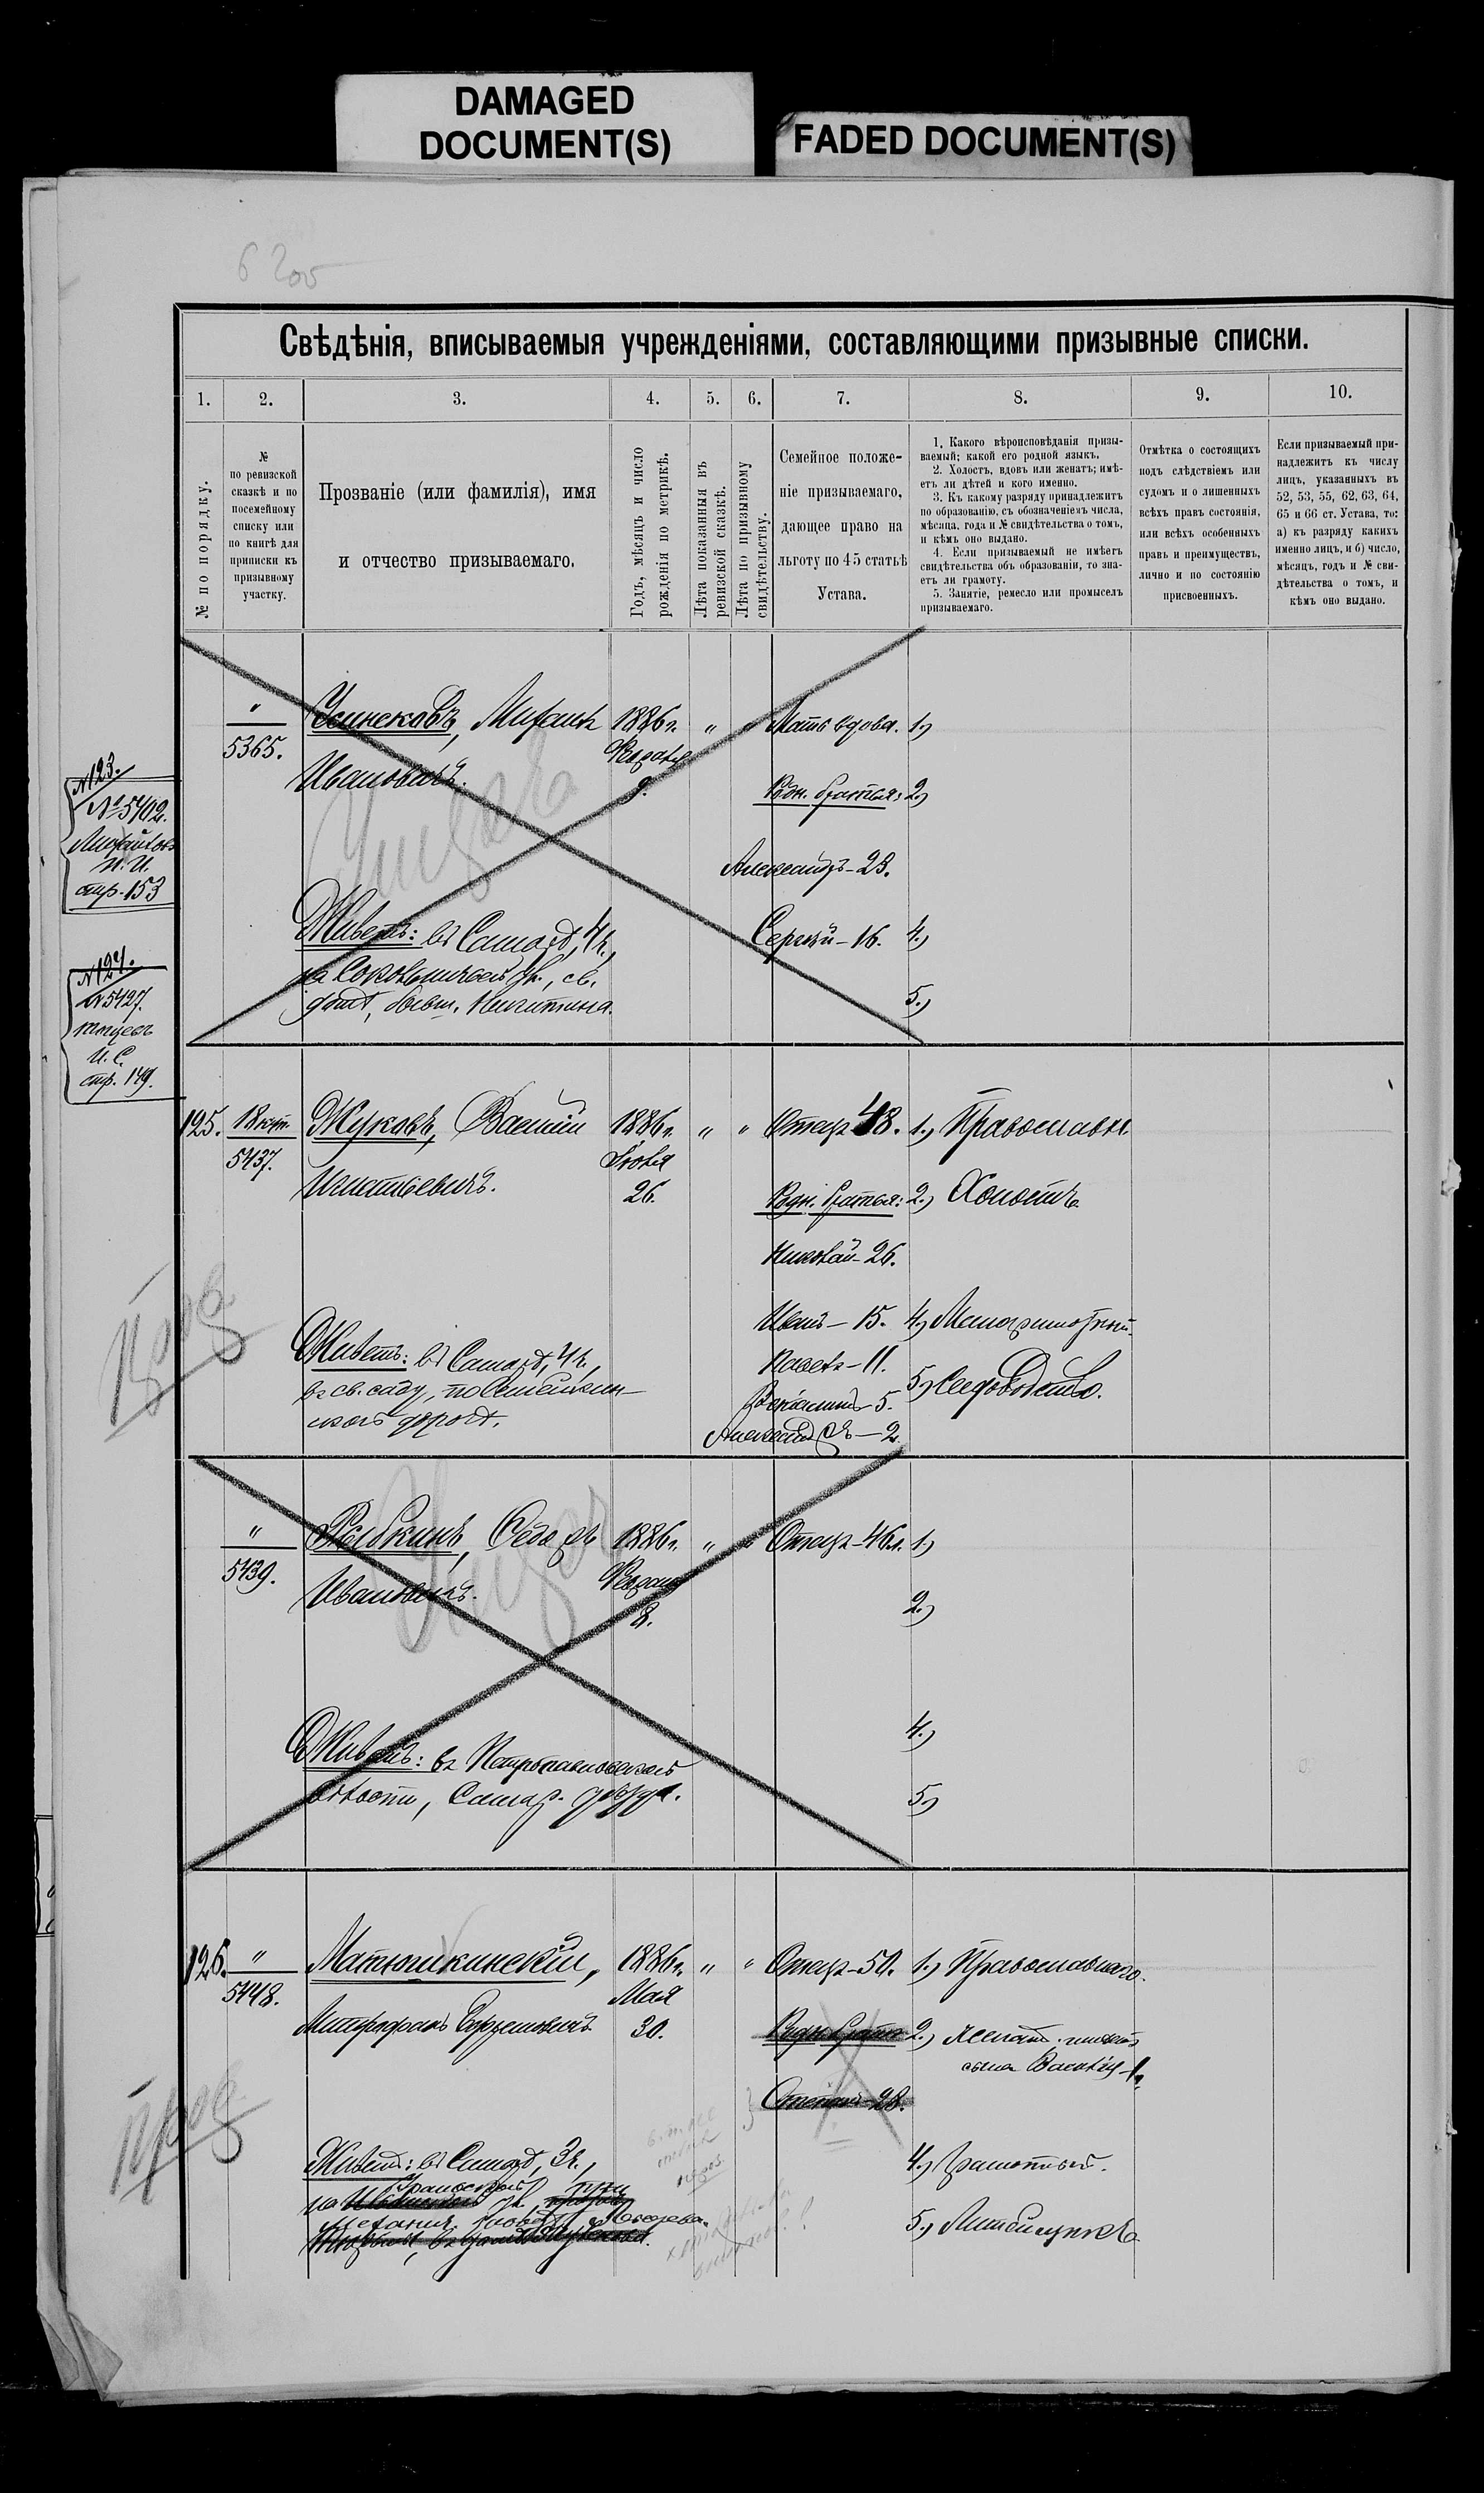 DAMAGED
DOCUMENT(S)
FADED DOCUMENT(S)
Свѣдѣнія, вписываемыя учрежденіями, составляющими призывные списки.
1.
2.
3.
4.
5.
6.
7.
8.
9.
10.
№ по порядку.
№
по ревизской
сказкѣ и по
посемейному
списку или
по книгѣ для
приписки къ
призывному
участку.
Прозваніе (или фамилія), имя
и отчество призываемаго.
Годъ, мѣсяцъ и число
рожденія по метрикѣ.
Лѣта показанныя въ
ревизской сказкѣ.
Лѣта по призывному
свидѣтельству.
Семейное положе-
ніе призываемаго,
дающее право на
льготу по 45 статьѣ
Устава.
1. Какого вѣроисповѣданія призы-
ваемый; какой его родной языкъ.
2. Холостъ, вдовъ или женатъ; имѣ-
етъ ли дѣтей и кого именно.
3. Къ какому разряду принадлежитъ
по образованію, съ обозначеніемъ числа,
мѣсяца, года и № свидѣтельства о томъ,
и кѣмъ оно выдано.
4. Если призываемый не имѣетъ
свидѣтельства объ образованіи, то зна-
етъ ли грамоту.
5. Занятіе, ремесло или промыселъ
призываемаго.
Отмѣтка о состоящихъ
подъ слѣдствіемъ или
судомъ и о лишенныхъ
всѣхъ правъ состоянія,
или всѣхъ особенныхъ
правъ и преимуществъ,
лично и по состоянію
присвоенныхъ.
Если призываемый при-
надлежитъ къ числу
лицъ, указанныхъ въ
52, 53, 55, 62, 63, 64,
65 и 66 ст. Устава, то:
а) къ разряду какихъ
именно лицъ, и б) число,
мѣсяцъ, годъ и № сви-
дѣтельства о томъ, и
кѣмъ оно выдано.
N 123.
№ 5402.
И. И.
стр. 153
N 124.
N 5427.
И. С.
стр. 149.
"
5365.
Михаилъ
Ивановичъ.
1886 г.
Февраля
9.
" "
Мать вдова.
Родн. братья:
Александръ - 23.
Сергѣй - 16.
1)
2)
4)
5)
Живетъ: въ Самарѣ, 4 ч.,
св.
домѣ, бывш. Никитина.
125.
5437.
Жуковъ, Василій
Игнатьевичъ.
1886 г.
Іюля
26.
" "
Отецъ 48.
Родн. братья:
Николай - 26.
Иванъ - 15.
Павелъ - 11.
Веніаминъ - 5.
Александръ - 2.
1.) Православн.
2.) Холостъ
4.) Малограмотный.
5.) Садоводство.
Живетъ: въ Самарѣ, 4 ч.,
въ св. саду, по Семейкин-
ской дорогѣ.
"
5439.
Рыбкинъ, Ѳедоръ
Ивановичъ.
1886 г.
Февраля
8.
" "
Отецъ - 46 л.
1)
2.)
4.)
5)
Живетъ: въ Петропавловской
волости, Самар. уѣзда.
126.
"
5448.
Матюшкинскій,
Митрофанъ
1886 г.
Мая
30.
" "
Отецъ - 50.
Родн. братъ
Степанъ - 28.
1.) Православнаго.
2.) Женатъ, имѣетъ
сына Василія - 1 г.
4.) Грамотный.
5.) Литейщикъ
Живетъ: въ Самарѣ, 3 ч.,
на